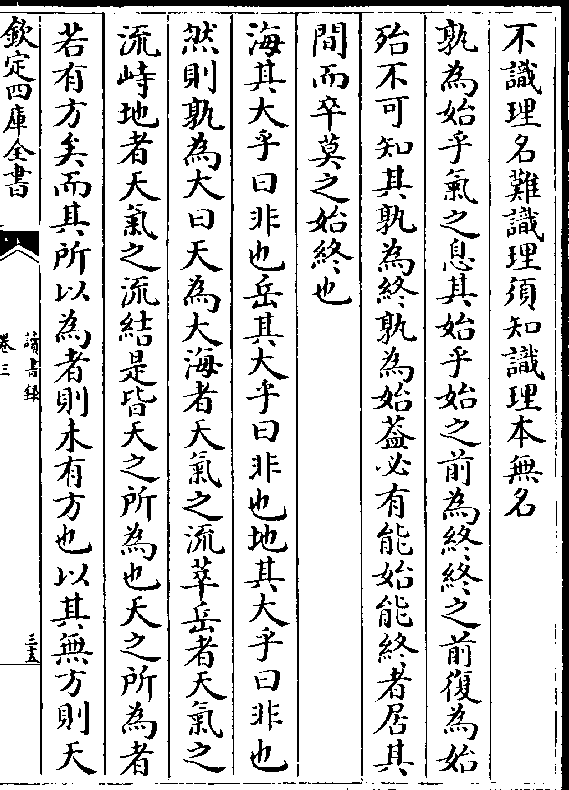 不識理名難識理須知識理本無名
孰為始乎氣之息其始乎始之前為終終之前復為始
殆不可知其孰為終孰為始葢必有能始能終者居其
間而卒莫之始終也
海其大乎曰非也岳其大乎曰非也地其大乎曰非也
然則孰為大曰天為大海者天氣之流萃岳者天氣之
流峙地者天氣之流結是皆天之所為也天之所為者
若有方矣而其所以為者則未有方也以其無方則天
欽定四庫全書
讀書錄
卷三
三五